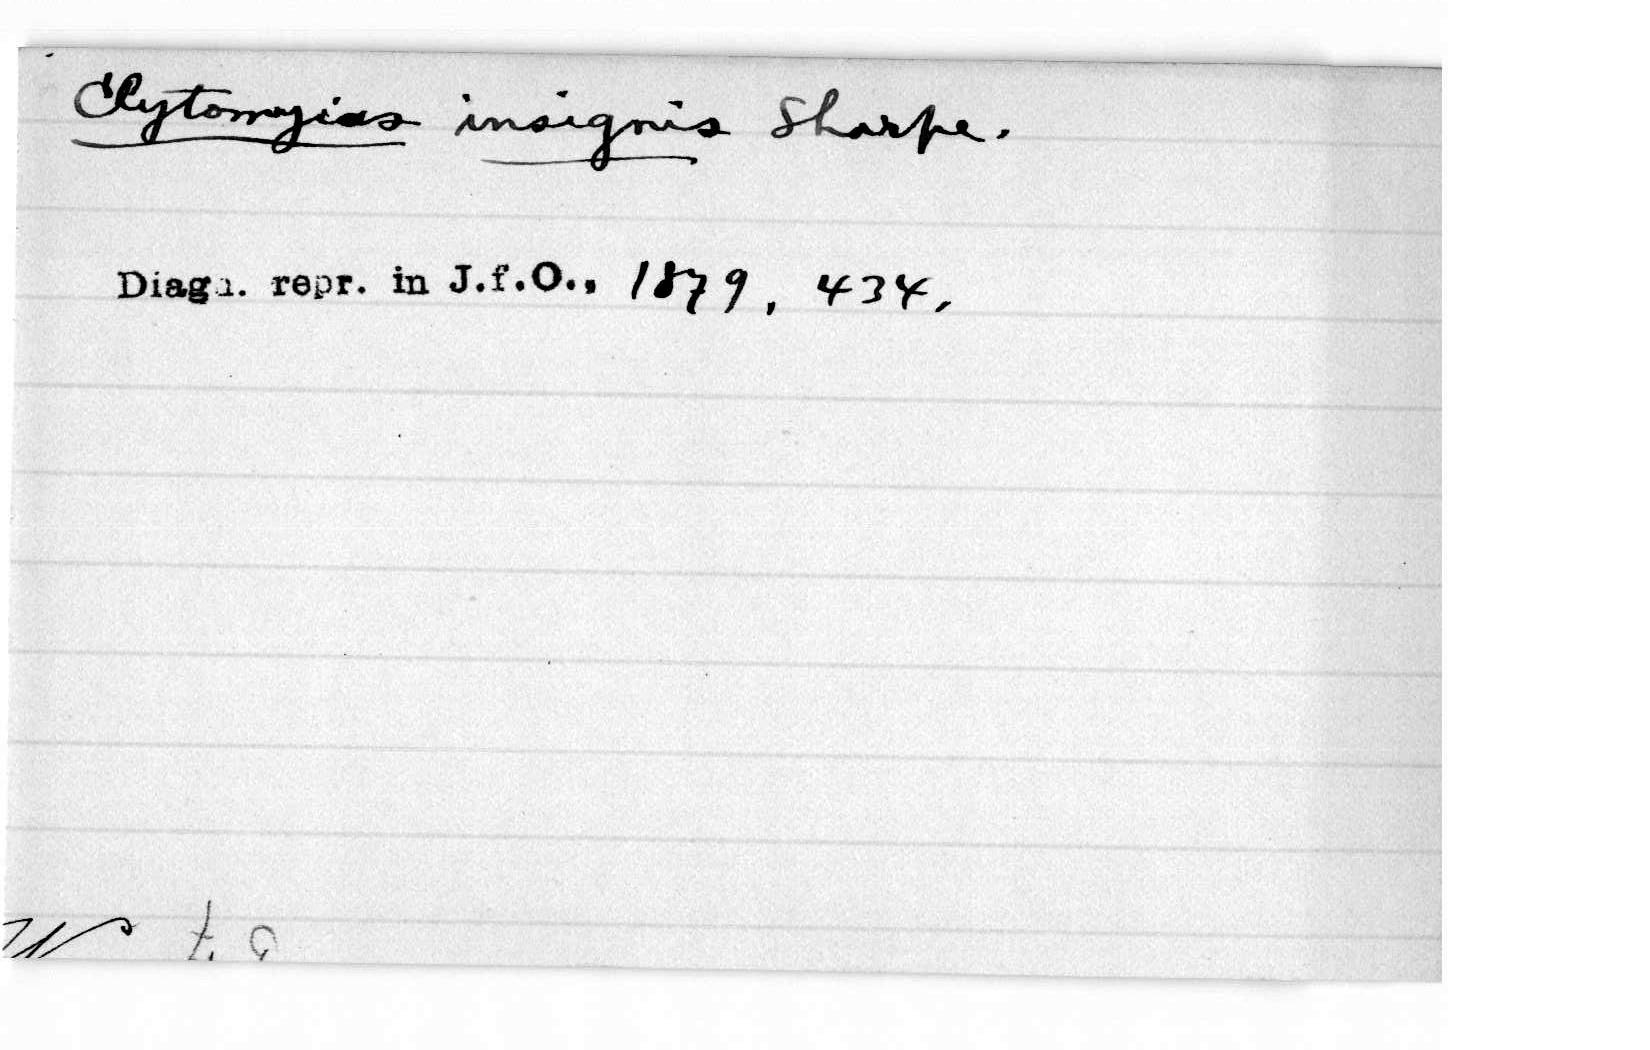 Clytomyias insignis Sharpe.
Diagn. repr. in J.f.O., 1879, 434,